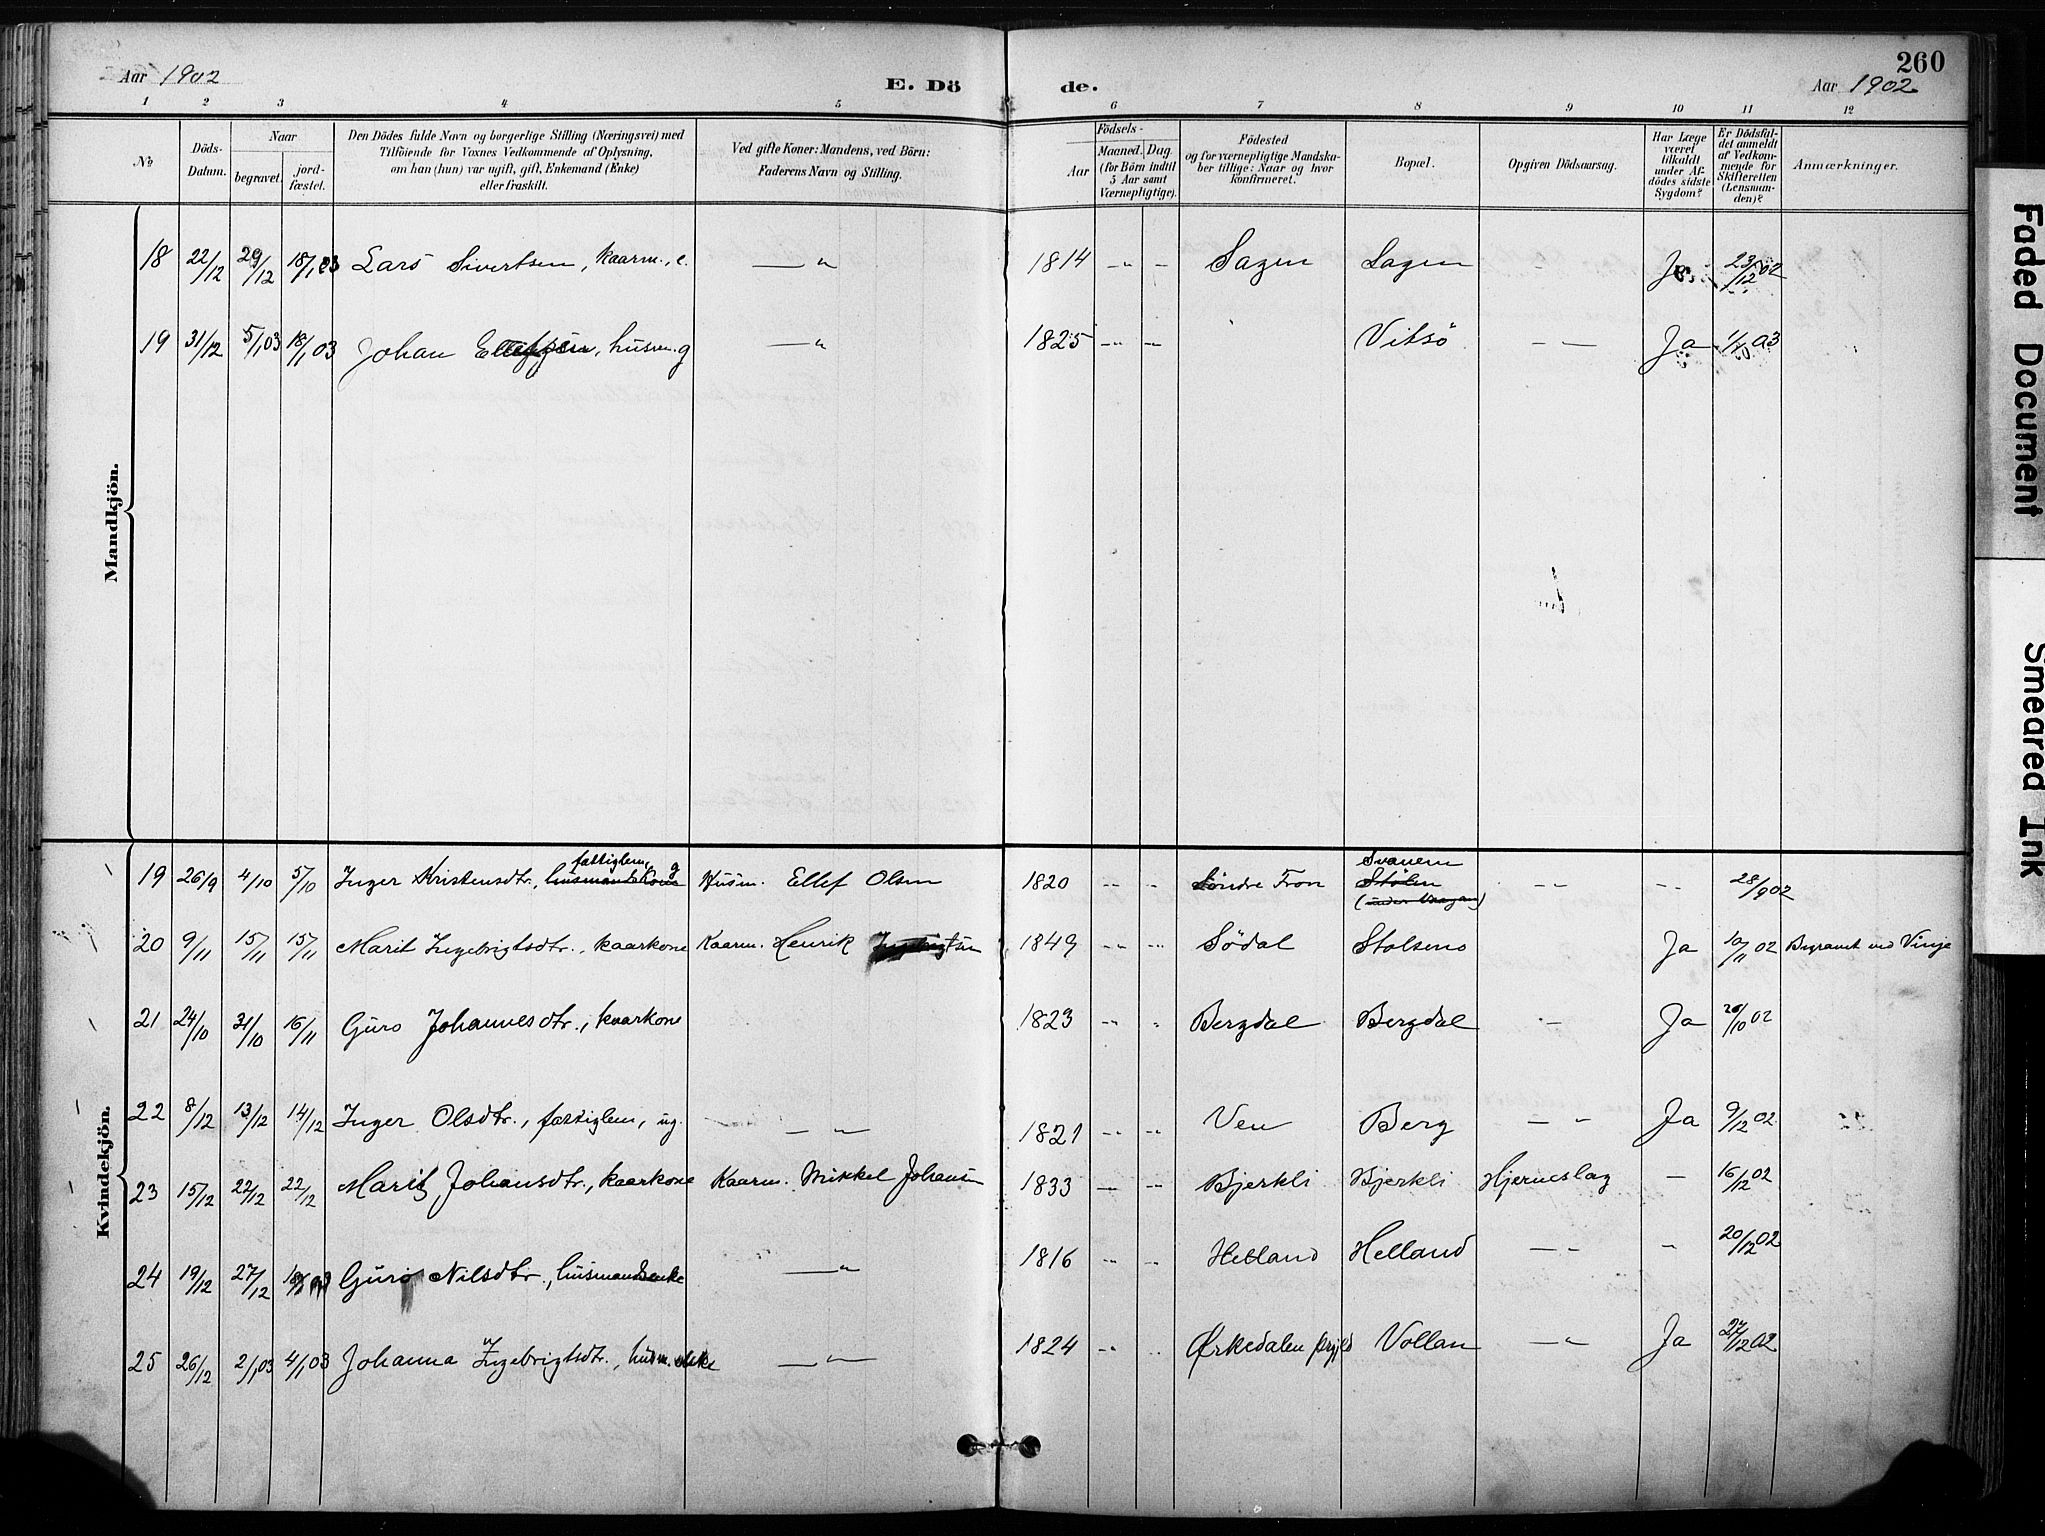 260
Aar 1902 E. Dö de. Aar 1902
1 2 3 4 5 6 7 8 9 10 11 12
No
Döds-Datum.
Naar
begravet.
jord-fæstet.
Den Dödes fulde Navn og borgerlige Stilling (Næringsvei) med
Tilföiende for Voxnes Vedkommende af Oplysning,
om han (hun) var ugift, gift, Enkemand (Enke)
eller fraskilt.
Ved gifte Koner: Mandens, ved Börn:
Faderens Navn og Stilling.
Födsels-
Aar
Maaned. Dag
(for Börn indtil
5 Aar samt
Værnepligtige).
Födested
og for værnepligtige Mandska-
ber tillige: Naar og hvor
konfirmeret.
Bopæl.
Opgiven Dödsaarsag.
Har Læge
været
tilkaldt
under Af-
dödes sidste
Sygdom?
Er Dödsfal-
det anmeldt
af Vedkom-
mende for
Skifteretten
(Lensman-
den)?
Anmærkninger.
Mandkjön.
18 22/12 29/12 18/1 03 Lars Sivertsen, kaarm., e. — " 1814 " - Sagen Sagen - Ja 23/12 02
19 31/12 5/1 03 18/1 03 Johan Ellefsen, husm. g — " 1825 - - Vitsö — — Ja 1/1 03
Kvindekjön.
fattiglem, g Svanem
19 26/9 4/10 5/10 Inger Kristensdtr., husmandskone Husm. Ellef Olsen 1820 - - Söndre Fron Stölen - - - - 28/9 02
(under Vaagan)
20 9/11 15/11 15/11 Marit Ingebrigtsdtr., kaarkone Kaarm. Henrik Ingebrigtsen 1849 - - Södal Stolsmo Ja 10/11 02 Begravet ved Vinje
21 24/10 31/10 16/11 Guro Johannesdtr., kaarkone 1823 - - Bergdal Bergdal - Ja 26/10 02
22 8/12 13/12 14/12 Inger Olsdtr., fattiglem, ug. — " 1821 - - Ven Berg — " Ja 9/12 02
23 15/12 22/12 22/12 Marit Johansdtr., kaarkone Kaarm. Mikkel Johansen 1833 - - Bjerkli Bjerkli Hjerneslag — 16/12 02
24 19/12 27/12 18/1 03 Guro Nilsdtr., husmandsenke — " 1816 - - Helland Helland — " " 20/12 02
25 26/12 2/1 03 4/1 03 Johanna Ingebrigtsdtr., husm.enke — " 1824 - - Ørkedalen prgjld Vollan — " Ja 27/12 02
Faded Document
Smeared Ink